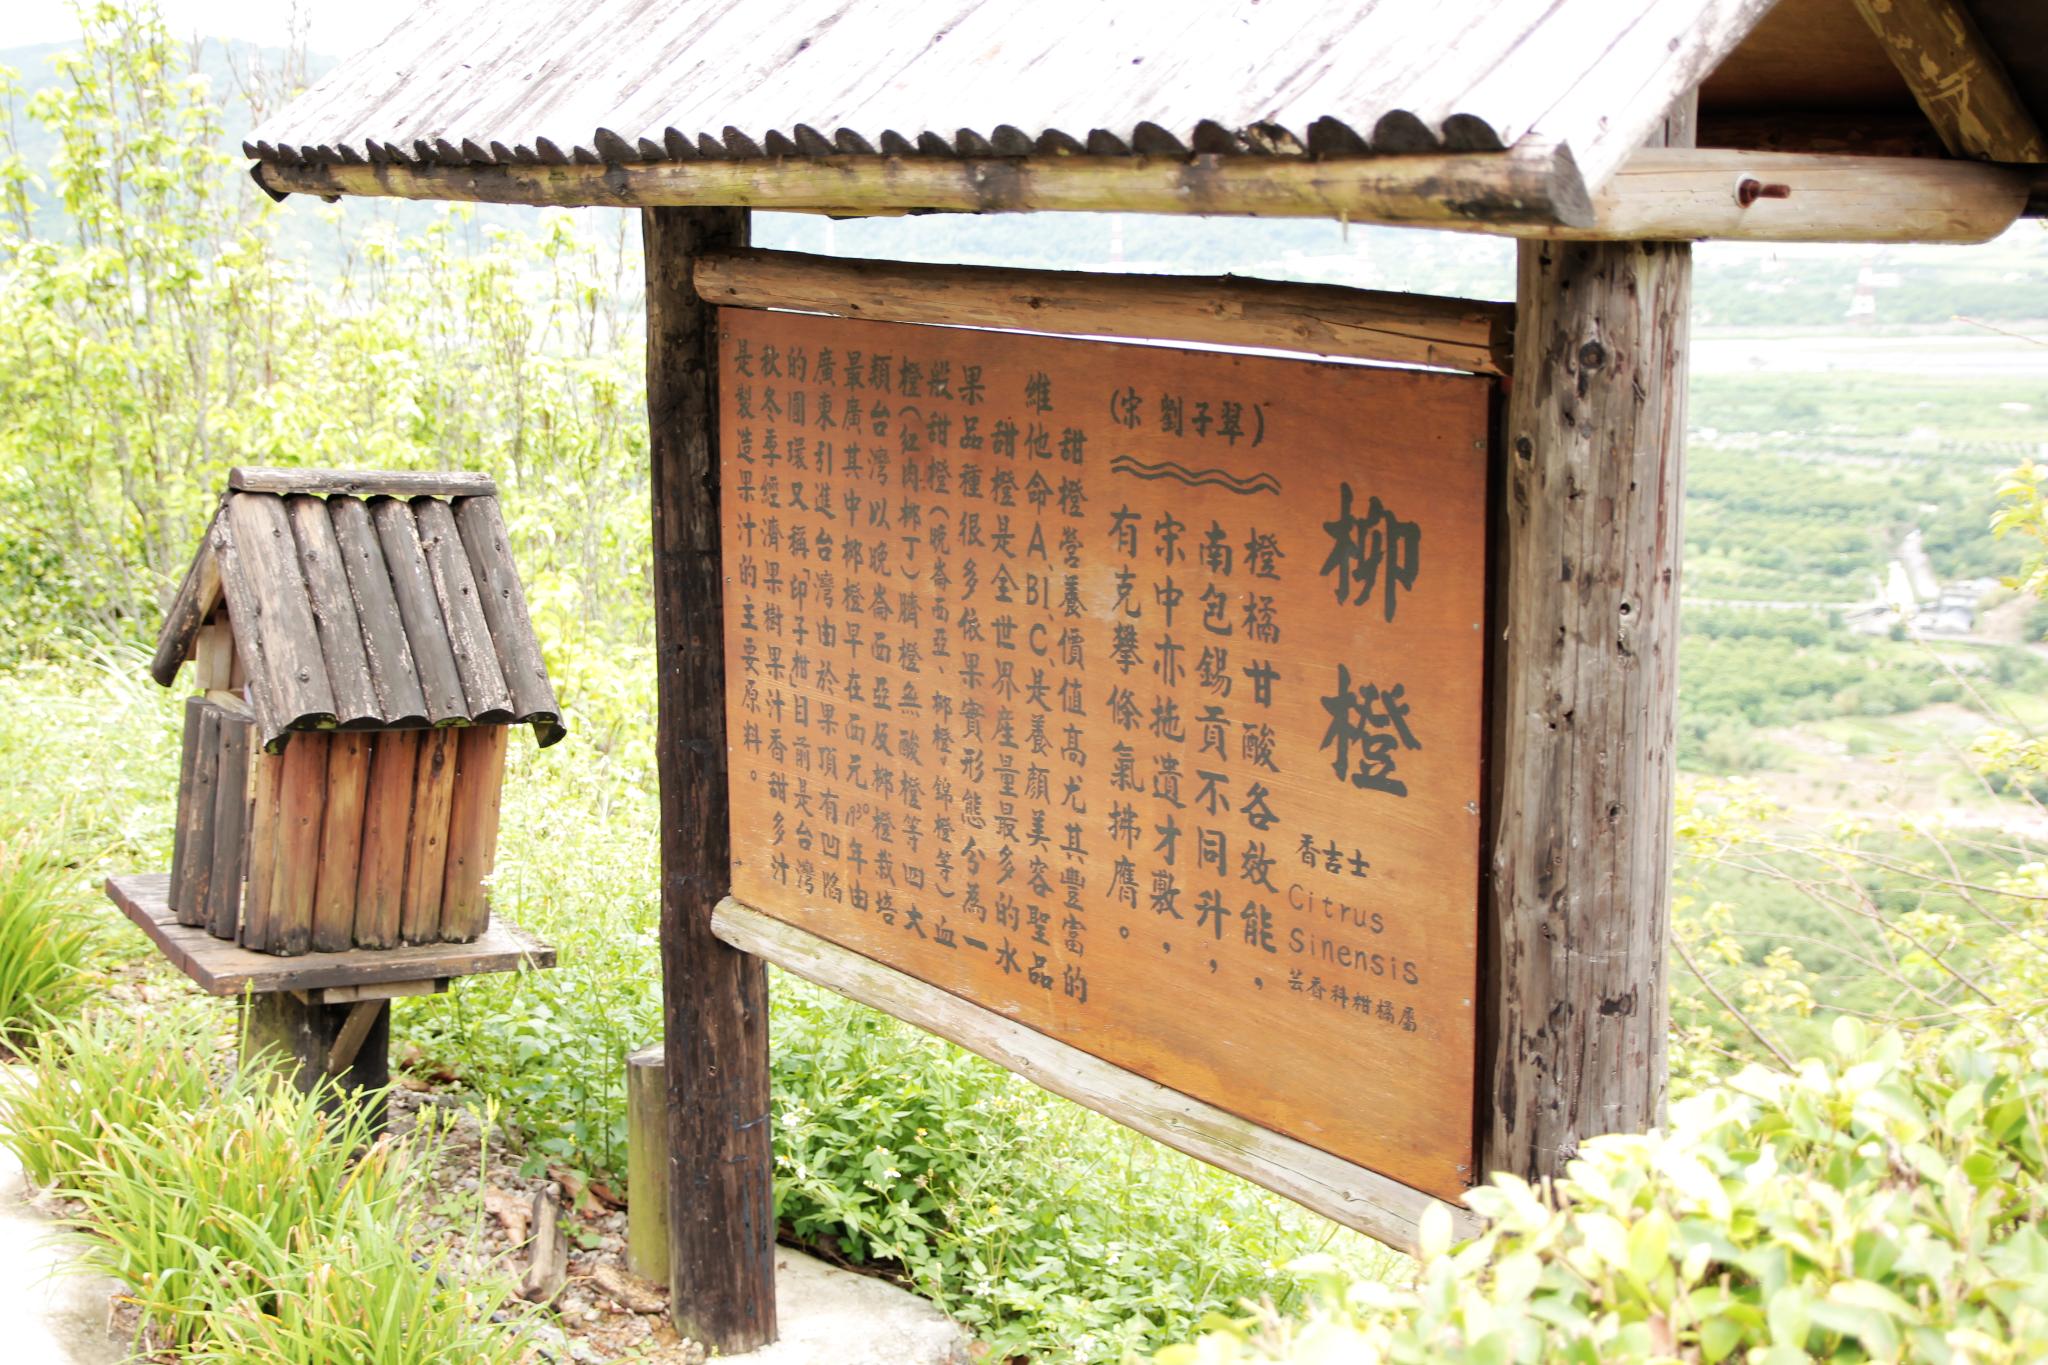 柳橙
香吉士
Citrus
Sinensis
芸香科柑橘屬
橙橘甘酸各效能，
南包錫貢不同升，
宋中亦拖遺才敷，
有克攀條氣拂膺。
(宋 劉子翠)
甜橙營養價值高尤其豐富的
維他命A、B1、C、是養顏美容聖品
甜橙是全世界産量最多的水
果品種很多依果實形態分為一
般甜橙(晚崙西亞、柳橙。錦橙等)血
橙(紅肉柳丁)臍橙無酸橙等四大
類台灣以晚崙西亞及柳橙栽培
最廣其中柳橙早在西元1930年由
廣東引進台灣由於果頂有凹陷
的圓環又稱「印子柑」目前是台灣
秋冬季經濟果樹果汁香甜多汁
是製造果汁的主要原料。